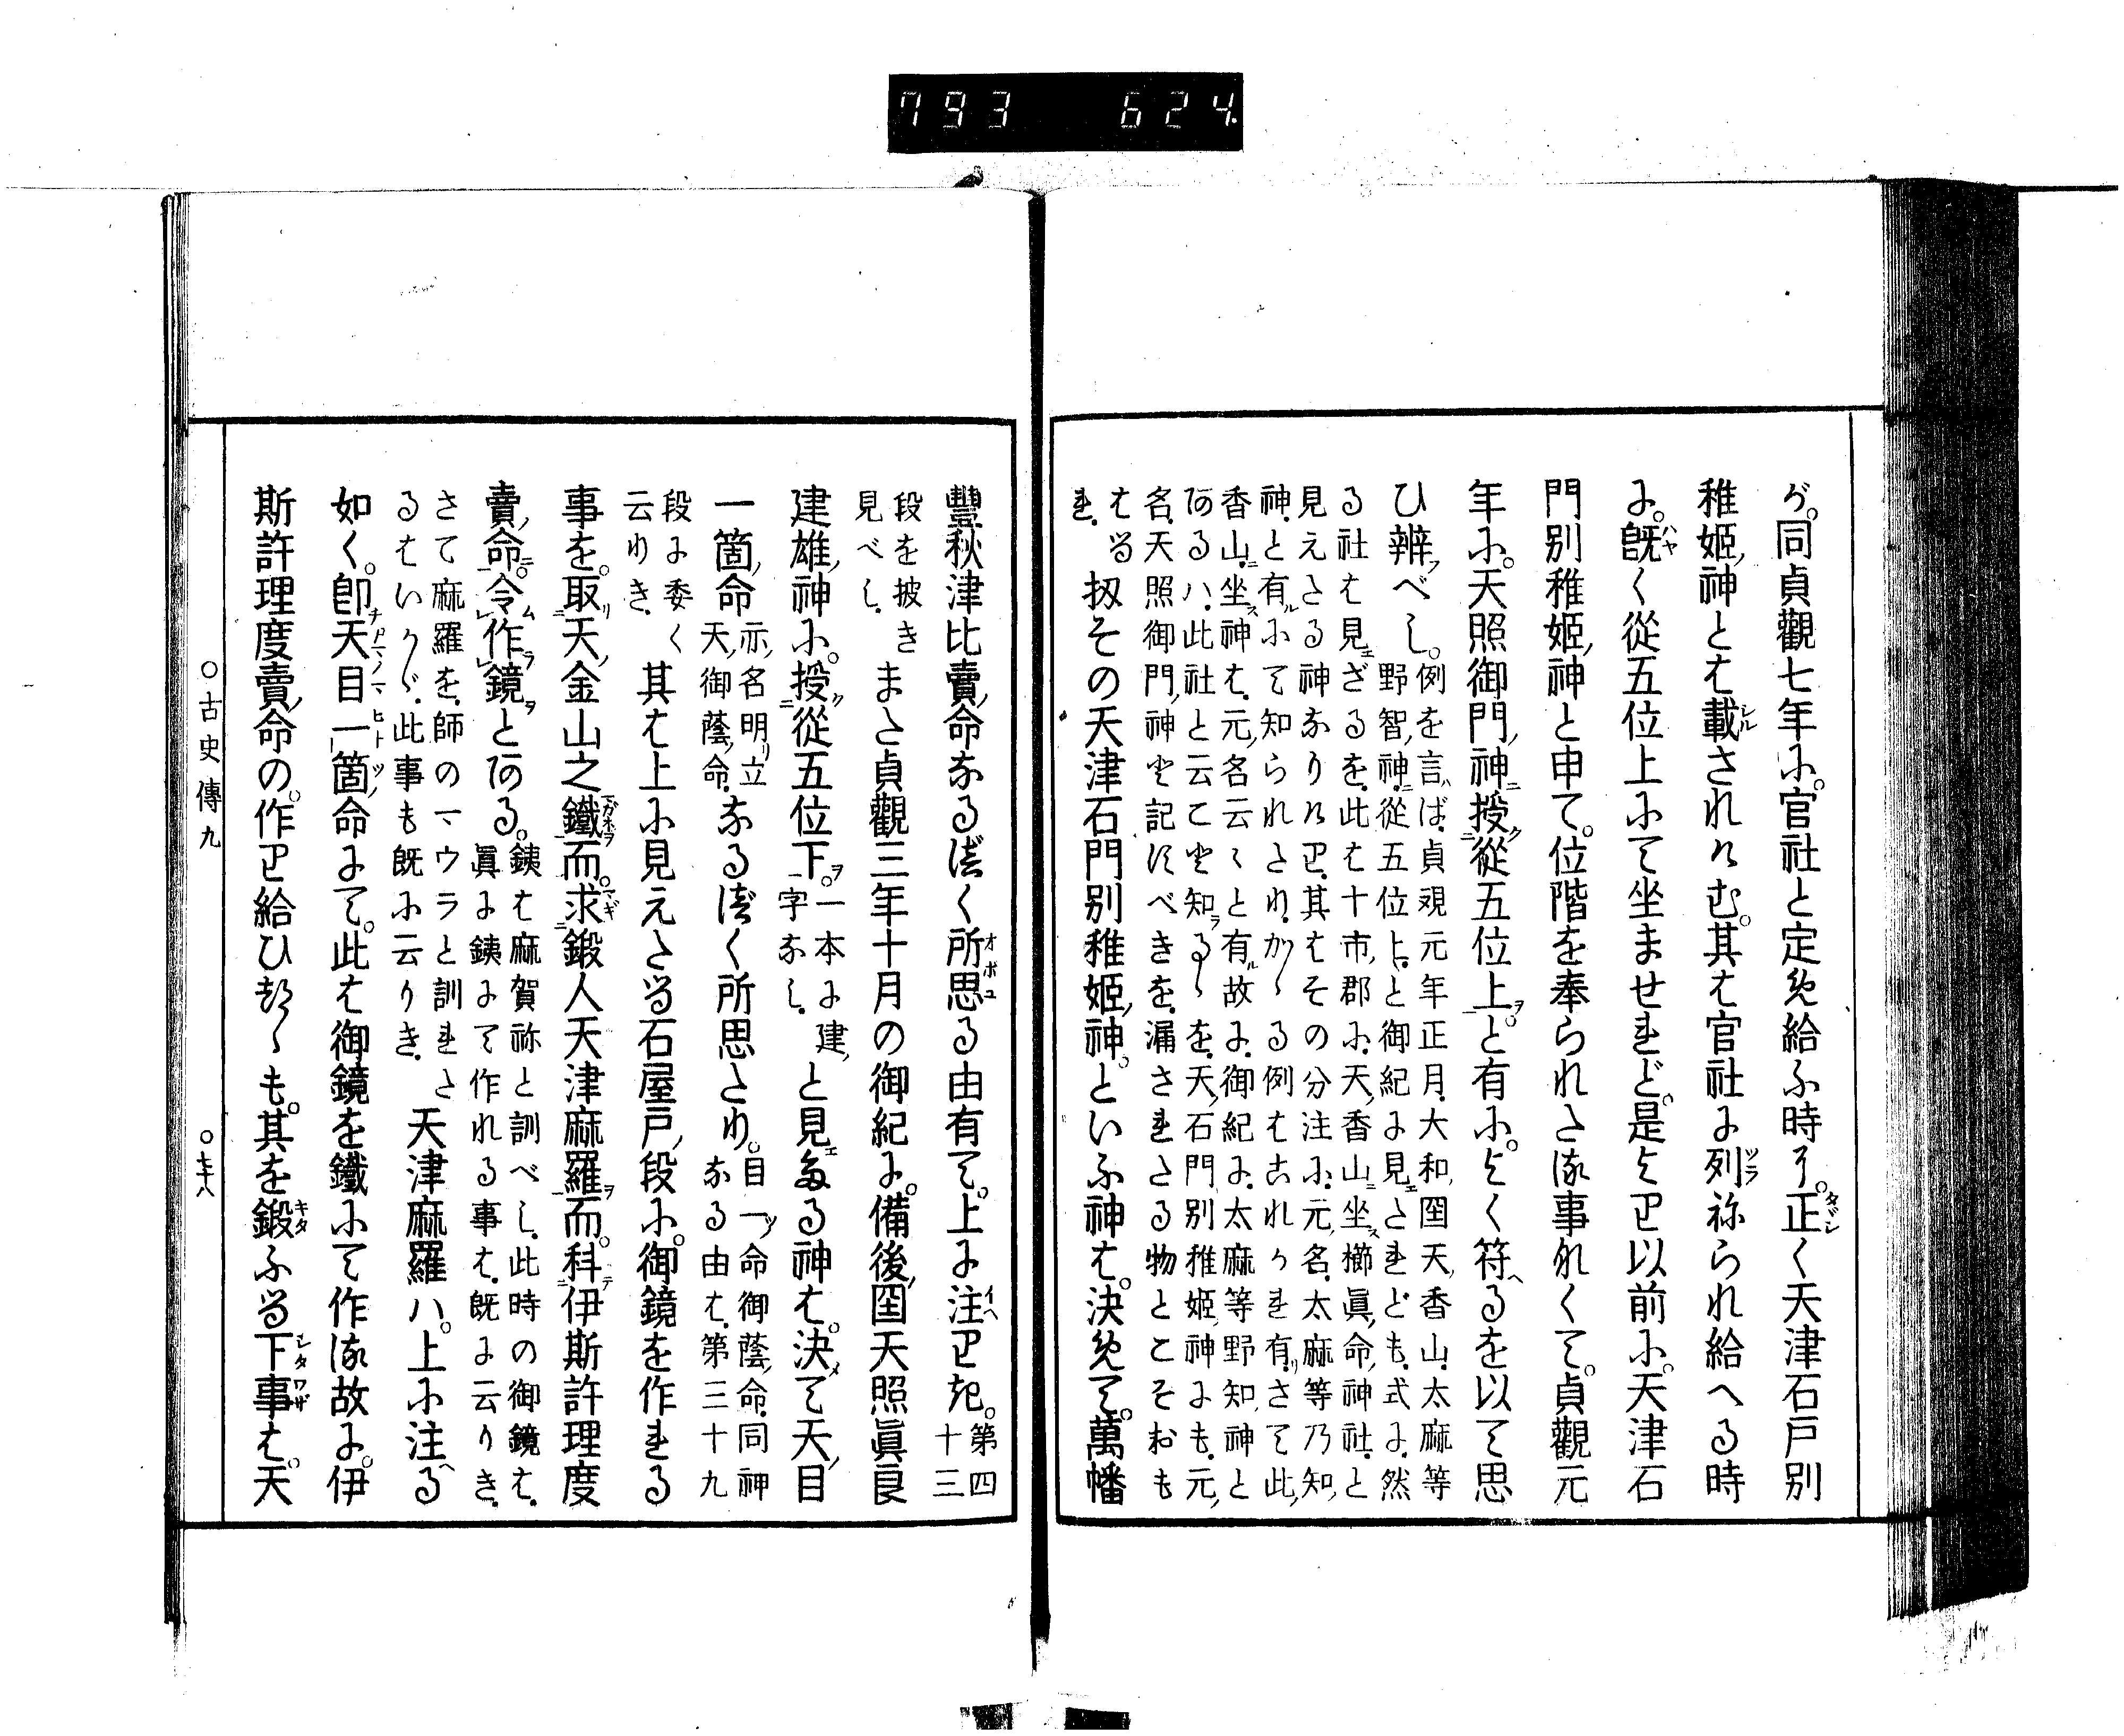 793 624
が。同貞觀七年に。官社と定め給ふ時に。正く天津石戸別
稚姫神とは載されけむ。其は官社に列ねられ給へる時
に。既く從五位上にて坐ませれど。是より以前に。天津石
門別稚姫神と申て。位階を奉られたる事なくて。貞觀元
年に。天照御門神授從五位上と有に。よく符るを以て思
ひ辨べし。
例を言ば、貞観元年正月、大和國天香山、太麻等
野智神、從五位上と御紀に見えたれども、式に然
る社は見ざるを、此は十市郡に、天香山坐櫛眞命神社と
見えたる神なりけり、其はその分注に、元名、太麻等乃知
神と有にて知られたり、かゝる例はこれかれ有、さて此
香山坐神は、元名云々と有故に、御紀に、太麻等野知神と
あるハ、此社と云こと知るゝを、天石門別稚姫神にも、元
名、天照御門神と記すべきを、漏されたる物とこそおも
はるれ、
扨その天津石門別稚姫神。といふ神は。決めて。萬幡
豐秋津比賣命なるべく所思る由有て。上に注りき。
第四十三
段を披き
見べし、
また貞觀三年十月の御紀に。備後國天照眞良
建雄神に。授從五位下。
一本に建
字なし、
と見えたる神は。決めて天目
一箇命
亦名明立
天御蔭命、
なるべく所思たり。
目一命御蔭命、同神
なる由は、第三十九
段に委く
云りき、
其は上に見えたる石屋戸段に。御鏡を作れる
事を。取天金山之鐵而。求鍛人天津麻羅而。科伊斯許理度
賣命。令作鏡とある。
銕は麻賀祢と訓べし、此時の御鏡は、
眞に銕にて作れる事は、既に云りき、
さて麻羅を、師のマウラと訓れた
るはいかゞ、此事も既に云りき、
天津麻羅ハ。上に注る
如く。卽天目一箇命にて。此は御鏡を鐵にて作る故に。伊
斯許理度賣命の。作り給ひつゝも。其を鍛ふる下事は。天
○古史傳九 ○七十八